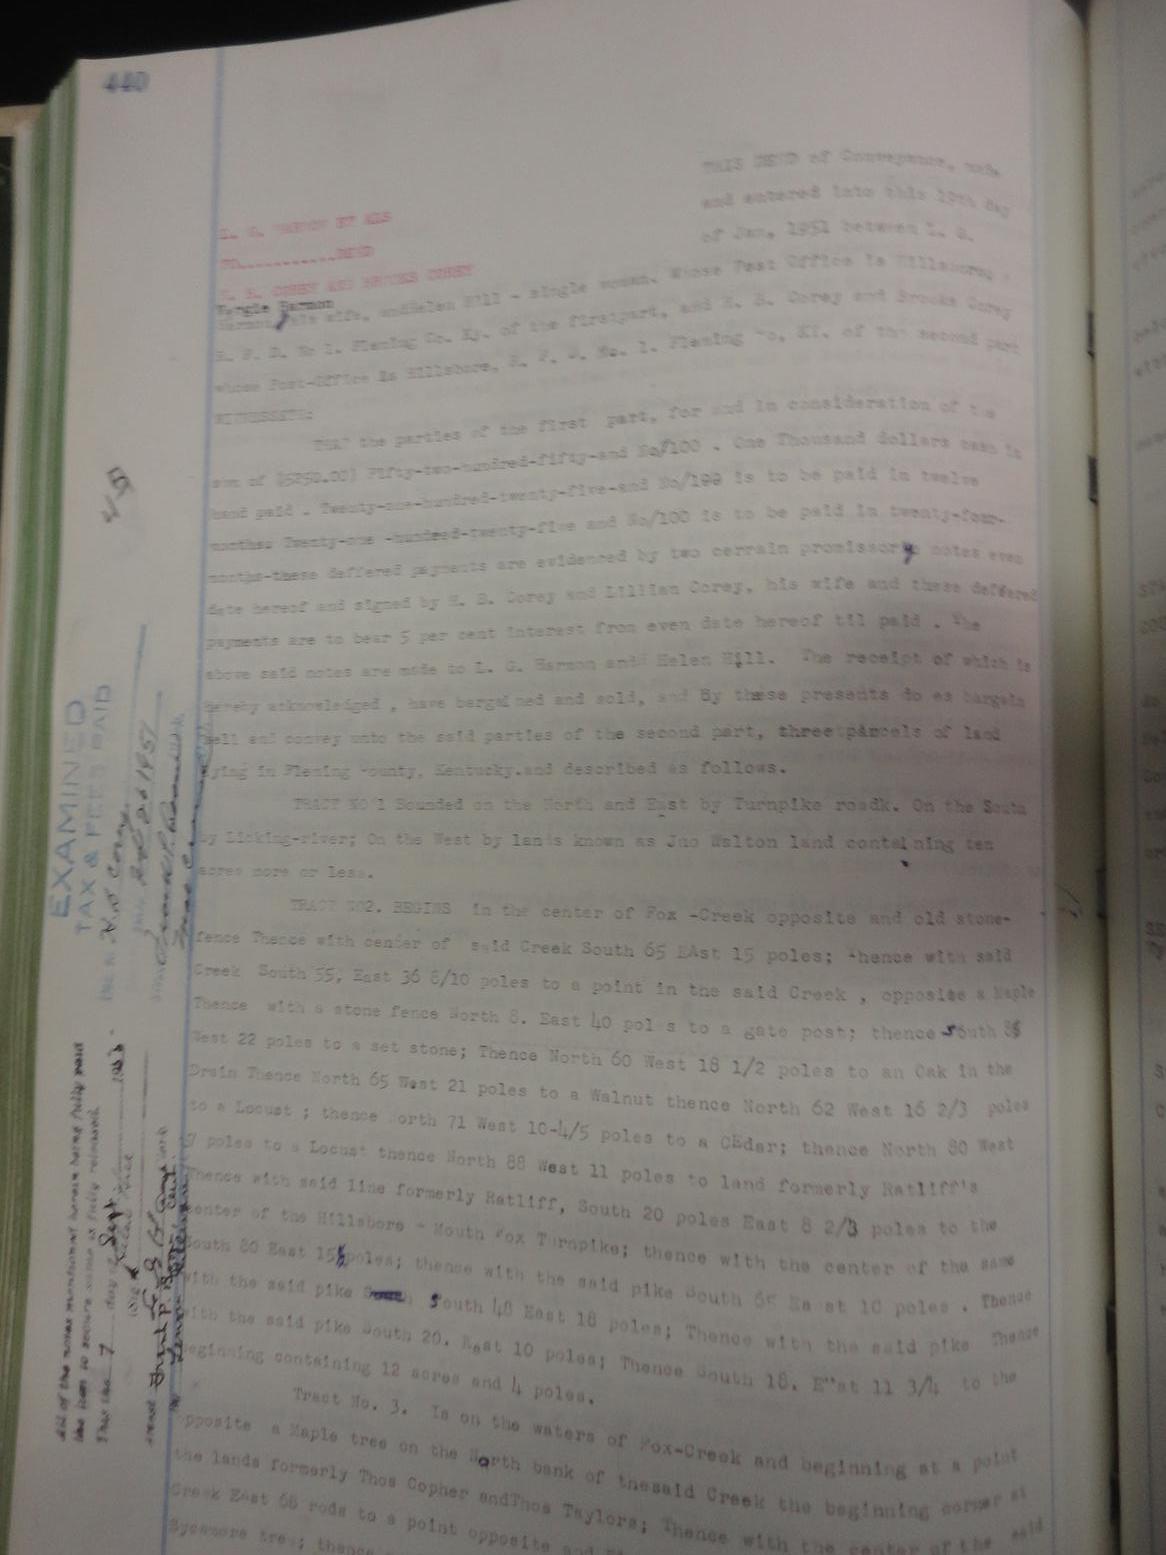 440
THIS DEED of Conveyance, made
and entered into this 19th day
of Jan, 1951 between L. G.
L. G. HARMON ET ALS
TO...........DEED
H. B. COREY AND BROOKS COREY
Margie Harmon
Harmon, his wife, andHelen Hill - single woman. Whose Post Office is Hillsboro,
R. F. D. No 1. Fleming Co. Ky. of the firstpart, and H. B. Corey and Brooks Corey
whose Post-Office is Hillsboro, R. F. D. No. 1. Fleming Co, KY. of the second part
WITNESSETH:
THAT the parties of the first part, for and in consideration of the
sum of ($5250.00) Fifty-two-hundred-fifty-and No/100 . One Thousand dollars cash in
hand paid . Twenty-one-hundred-twenty-five-and No/100 is to be paid in twelve
months: Twenty-one -hundred-twenty-five and No/100 is to be paid in twenty-four-
months-these deffered payments are evidenced by two cerrain promissory notes even
date hereof and signed by H. B. Corey and Lillian Corey, his wife and these deffered
payments are to bear 5 per cent interest from even date hereof til paid . The
above said notes are made to L. G. Harmon and Helen Hill. The receipt of which is
hereby acknowledged , have bargained and sold, and By these presents do es bargain
sell and convey unto the said parties of the second part, three parcels of land
lying in Fleming County, Kentucky.and described as follows.
TRACT NO 1 Bounded on the North and East by Turnpike roadk. On the South
by Licking-river; On the West by lands known as Jno Walton land containing ten
acres more or less.
TRACT NO2. BEGINS in the center of Fox -Creek opposite and old stone-
fence Thence with center of said Creek South 65 EAst 15 poles; thence with said
Creek South 55, East 36 8/10 poles to a point in the said Creek , opposite a Maple
Thence with a stone fence North 8. East 40 poles to a gate post; thence South 85
West 22 poles to a set stone; Thence North 60 West 18 1/2 poles to an Oak in the
Drain Thence North 65 West 21 poles to a Walnut thence North 62 West 16 2/3 poles
to a Locust ; thence North 71 West 10-4/5 poles to a CEdar; thence North 80 West
9 poles to a Locust thence North 88 West 11 poles to land formerly Ratliff's
Thence with said line formerly Ratliff, South 20 poles East 8 2/3 poles to the
center of the Hillsboro - Mouth Fox Turnpike; thence with the center of the same
South 80 East 15 poles; thence with the said pike South 65 Ea st 10 poles . Thence
with the said pike South 48 East 18 poles; Thence with the said pike Thence
with the said pike South 20. East 10 poles; Thence South 18. East 11 3/4 to the
beginning containing 12 acres and 4 poles.
Tract No. 3. Is on the waters of Fox-Creek and beginning at a point
opposite a Maple tree on the North bank of thesaid Creek the beginning corner at
the lands formerly Thos Copher andThos Taylors; Thence with the center of the said
Creek East 66 rods to a point opposite and
Sycamore tree; thence
EXAMINED
TAX & FEES PAID
H B Corey
All of the notes mentioned herein being fully paid
the lien to secure same is fully released.
This the 7 day of Sept 1953